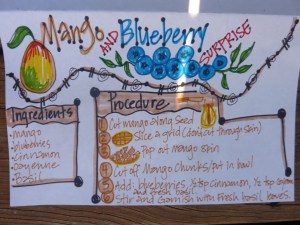 Mango AND Blueberry SURPRISE
Ingredients
-Mango
-blueberries
-cinnamen
-cayenne
-Basil
Procedure
1 Cut mango along Seed
2 Slice a grid (don't cut through skin)
3 Pop out mango skin
4 Cut off Mango Chunks/put in bowl
5 Add: blueberries, ½ tsp cinnamen, ½ tsp
and fresh basil
Stir and Garnish with Fresh basil leaves